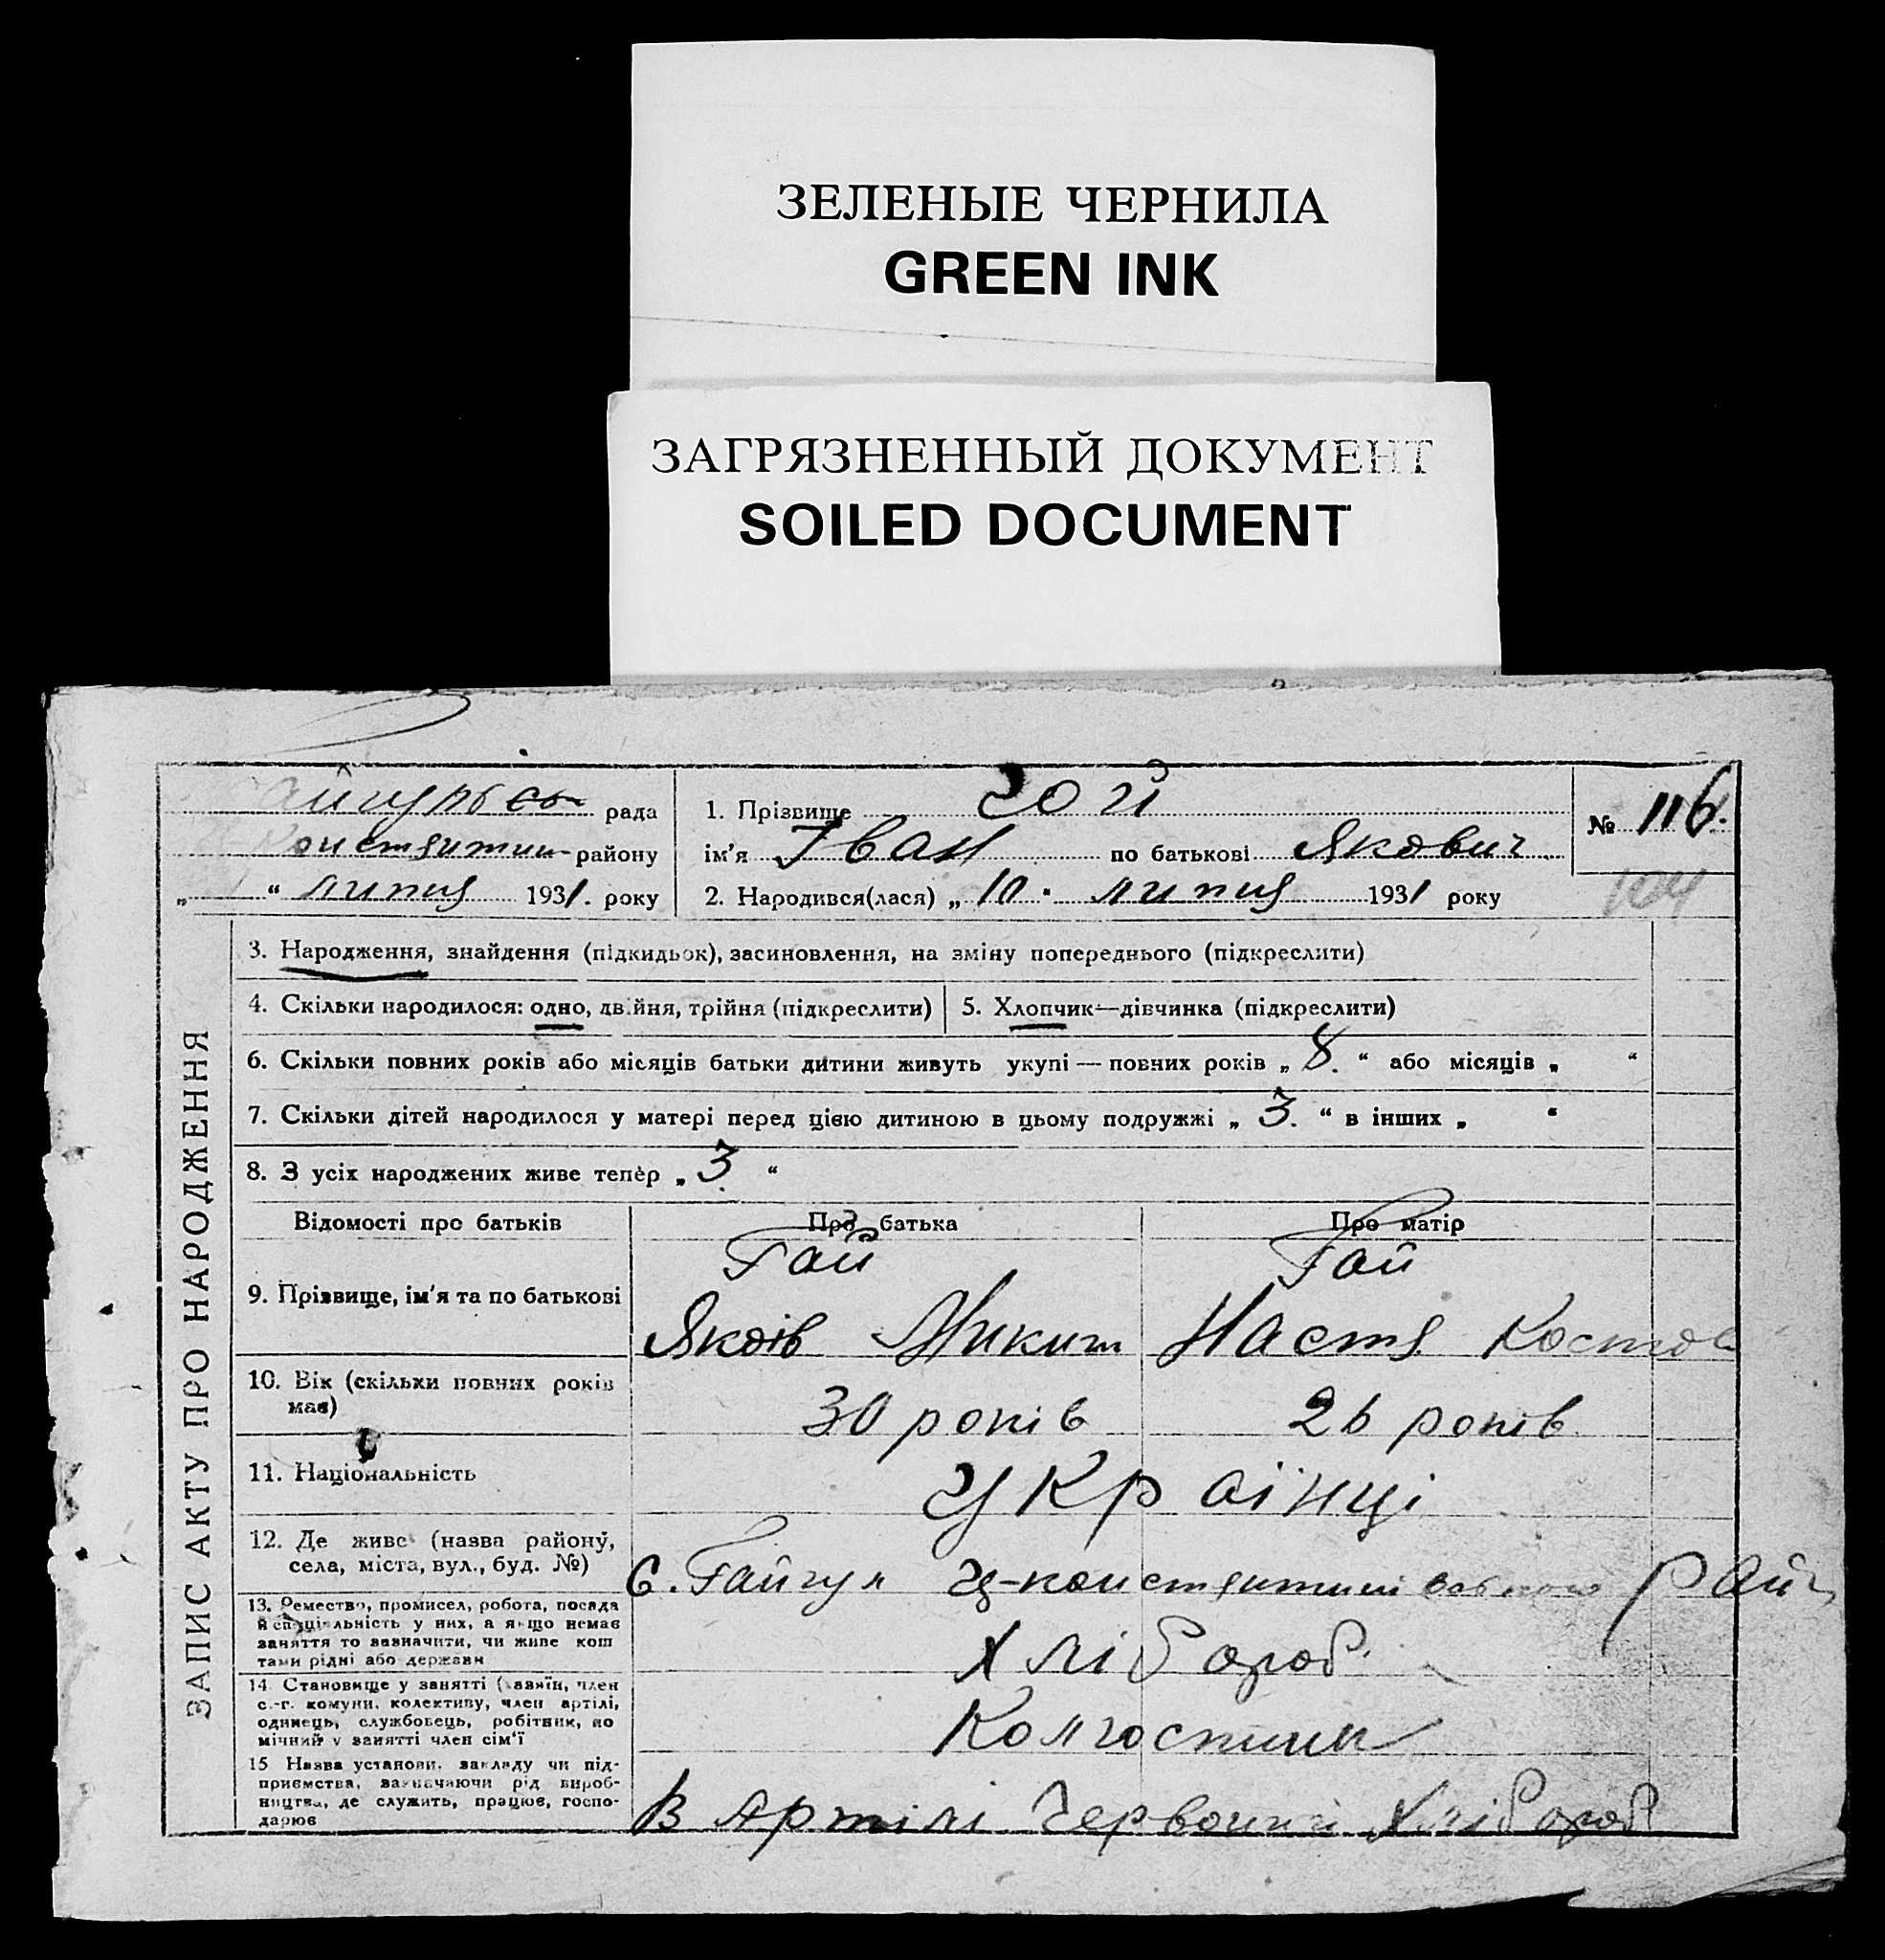 ЗЕЛЕНЫЕ ЧЕРНИЛА
GREEN INK
ЗАГРЯЗНЕННЫЙ ДОКУМЕНТ
SOILED DOCUMENT
рада
району
„ “ липня 1931. року
1. Прізвище Гай
ім'я Іван по батькові Якович
2. Народився(лася) „10“ липня 1931 року
№ 116.
ЗАПИС АКТУ ПРО НАРОДЖЕННЯ
3. Народження, знайдення (підкидьок), засиновлення, на зміну попереднього (підкреслити)
4. Скільки народилося: одно, двійня, трійня (підкреслити)
5. Хлопчик—дівчинка (підкреслити)
6. Скільки повних років або місяців батьки дитини живуть укупі — повних років „8.“ або місяців „ “
7. Скільки дітей народилося у матері перед цією дитиною в цьому подружжі „3.“ в інших „ “
8. З усіх народжених живе тепер „3“
Відомості про батьків Про батька Про матір
Гай Гай
9. Прізвище, ім'я та по батькові Яків Микит Настя Костов
10. Вік (скільки повних років має) 30 років 26 років
11. Національність Українці
12. Де живе (назва району, села, міста, вул., буд. №) С. Гайгул Рай
13. Ремество, промисел, робота, посада й спеціяльність у них, а якщо немає заняття то зазначити, чи живе коштами рідні або держави Хлібороб.
14 Становище у занятті (хазяїн, член с.-г. комуни, колективу, член артілі, одинець, службовець, робітник, помічний у занятті член сім'ї Колгоспник
15 Назва установи, закладу чи підприємства, зазначаючи рід виробництва, де служить, працює, господарює В Артілі Червоний Хлібороб